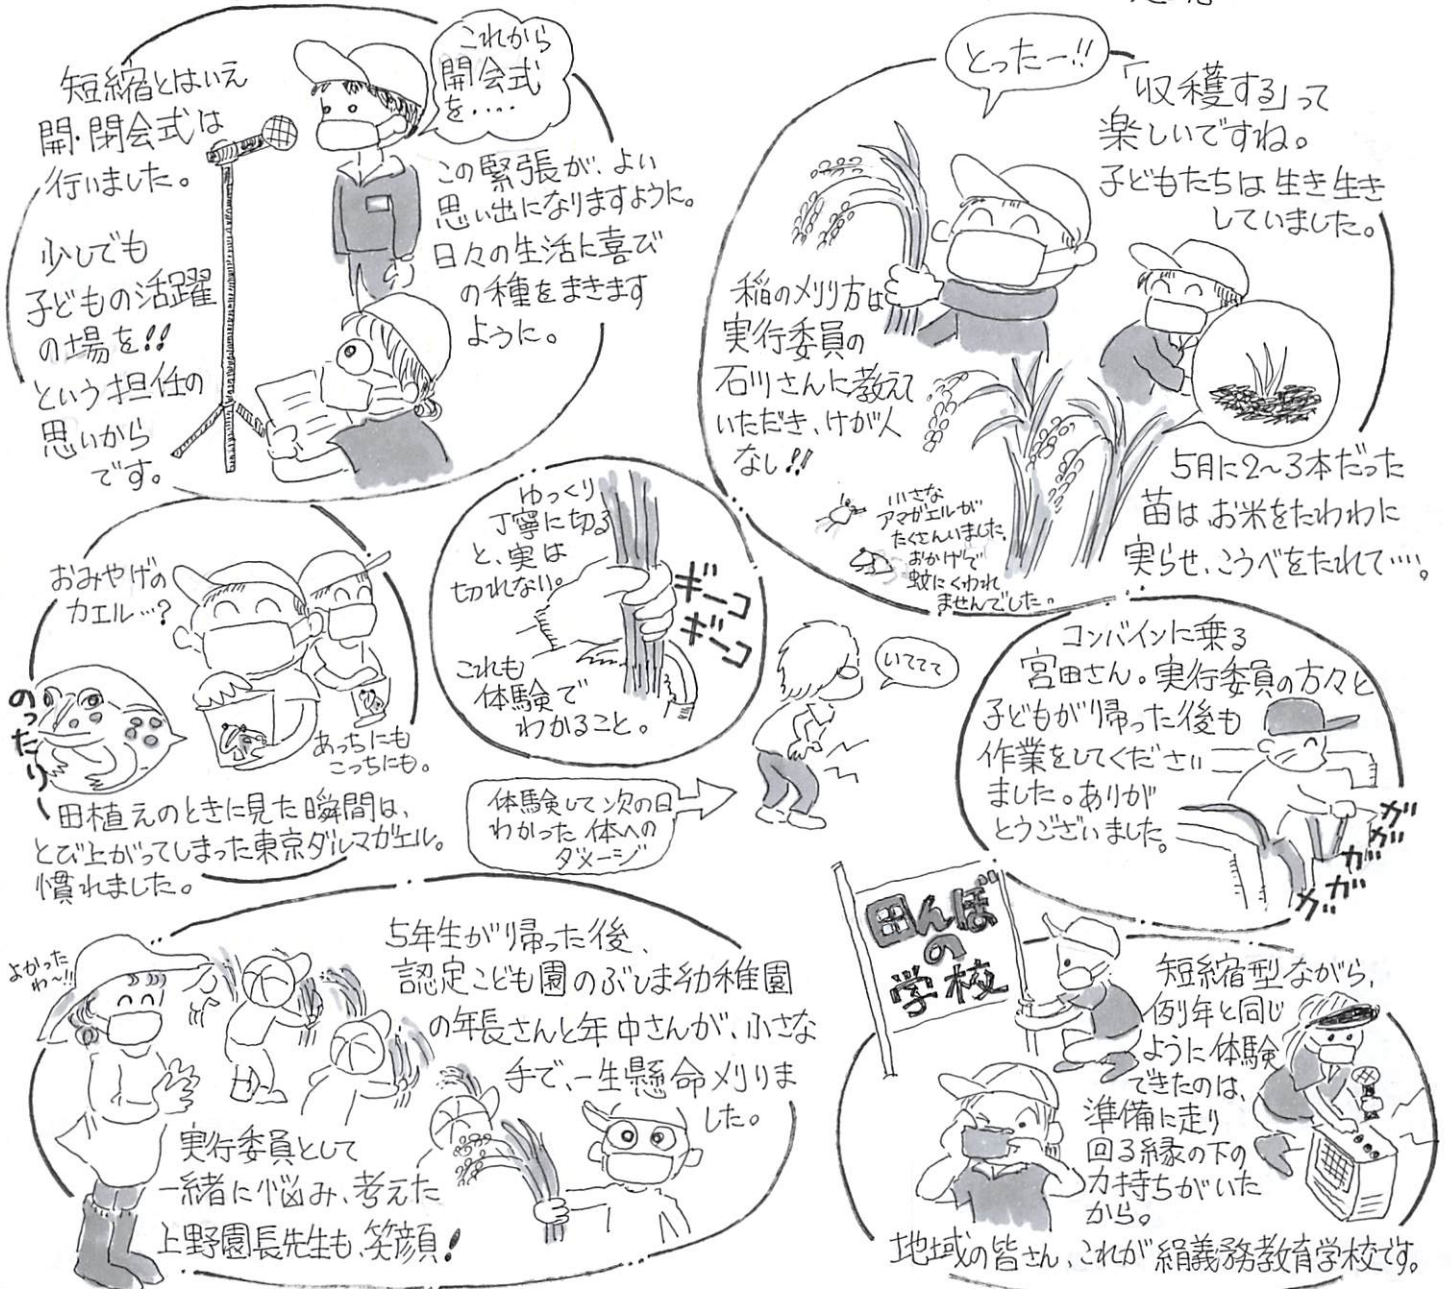 短縮とはいえ
開・閉会式は
行いました。
少しでも
子どもの活躍
の場を!!
という担任の
思いから
です。
これから
開会式
を・・・・
この緊張が、よい
思い出になりますように。
日々の生活に喜び
の種をまきます
ように。
とったー!!
「収穫する」って
楽しいですね。
子どもたちは生き生き
していました。
稲のメリリ方は
実行委員の
石川さんに教えて
いただき、けが人
なし!!
小さな
アマガエルが
たくさんいました。
おかげで
蚊にくわれ
ませんでした。
5月に2～3本だった
苗はお米をたわわに
実らせ、こうべをたれて・・・・。
おみやげの
カエル・・・?
のったり
あっちにも
こっちにも。
田植えのときに見た瞬間は、
とび上がってしまった東京ダルマガエル。
慣れました。
ゆっくり
丁寧に切る
と、実は
切れない。
ギーコ
ギーコ
これも
体験で
わかること。
いててて
体験して次の日
わかった体への
ダメージ
コンバインに乗る
宮田さん。実行委員の方々と
子どもが帰った後も
作業をしてください
ました。ありが
とうございました。
ガガガガガ
よかった
わ〜!!
5年生が帰った後、
認定こども園のぶしま幼稚園
の年長さんと年中さんが、小さな
手で、一生懸命メリりま
した。
実行委員として
一緒に悩み、考えた
上野園長先生も、笑顔!
田んぼ
の
学校
短縮型ながら、
例年と同じ
ように体験
できたのは、
準備に走り
回る縁の下の
力持ちがいた
から。
地域の皆さん、これが絹義務教育学校です。